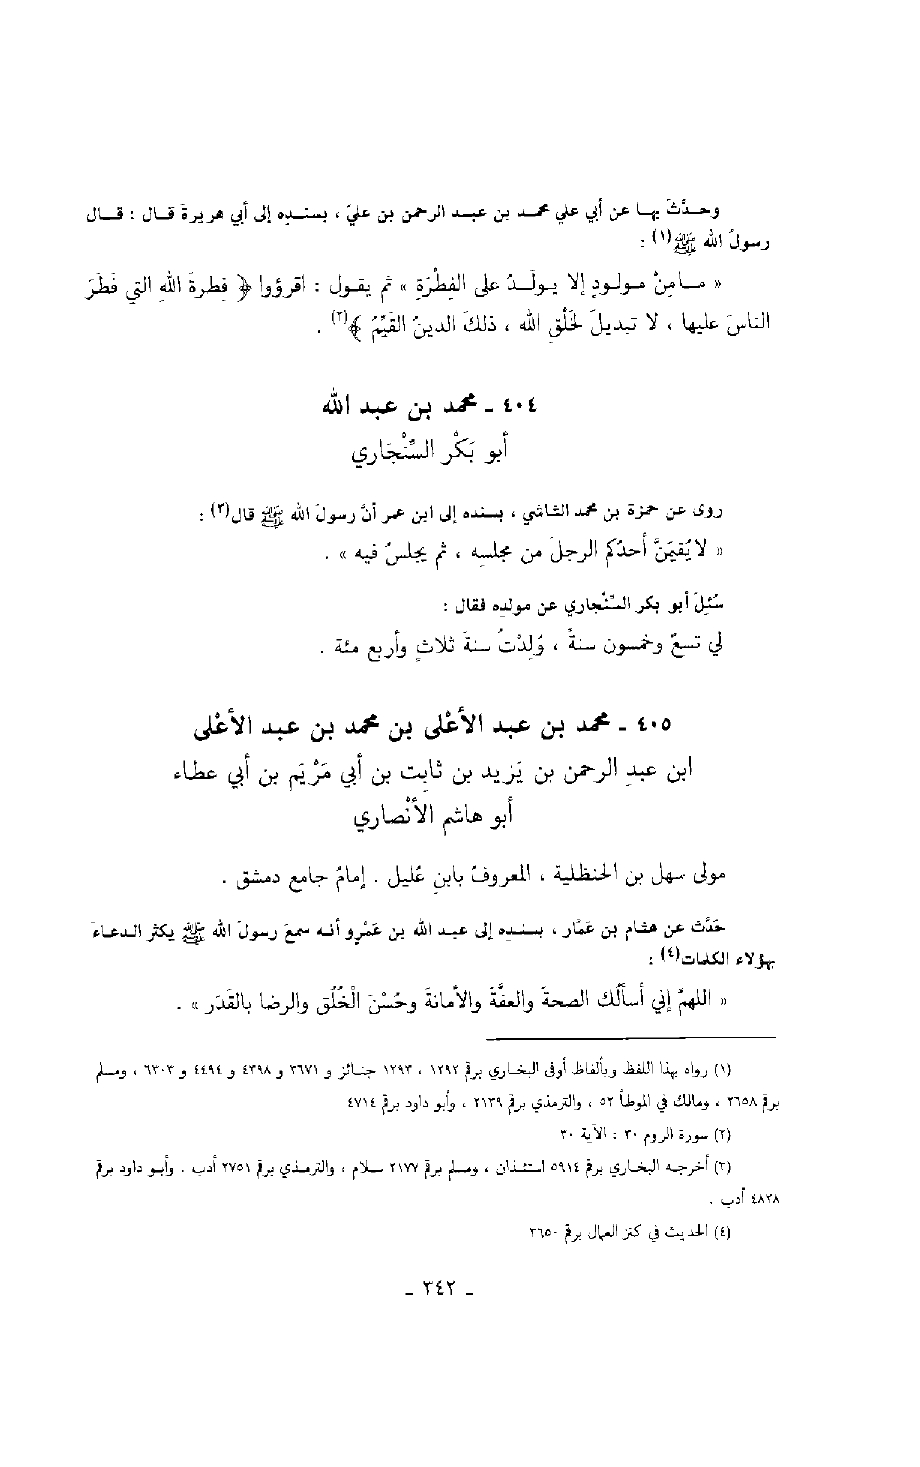 وحــدَّثَ بهـا عن أبي علي محمـد بن عبـد الرحمن بن عليّ ، بسنـده إلى أبي هريرة قـال : قـال
رسولُ الله ﷺ(١) :
« مـامِنْ مولـودٍ إلا يـولَـدُ على الفِطْرَةِ » ثم يقـول : اقرؤوا ﴿ فِطرةَ اللهِ التي فَطَرَ
الناسَ عليها ، لا تبديلَ لخَلْقِ الله ، ذلكَ الدينُ القَيِّمُ ﴾(٢) .
٤٠٤ ـ محمد بن عبد الله
أبو بَكْر السِّنْجَاري
روى عن حمزة بن محمد الشاشي ، بسنده إلى ابن عمر أنَّ رسولَ الله ﷺ قال(٣) :
« لا يُقيمَنَّ أحدُكم الرجلَ من مجلسِه ، ثم يجلسُ فيه » .
سُئِلَ أبو بكر السِّنْجاري عن مولده فقال :
لي تسعٌ وخمسون سنةً ، وُلِدْتُ سنةَ ثلاثٍ وأربع مئة .
٤٠٥ ـ محمد بن عبد الأعْلى بن محمد بن عبد الأعْلى
ابن عبدِ الرحمن بن يَزيد بن ثابِت بن أبي مَرْيَم بن أبي عطاء
أبو هاشم الأنْصاري
مولى سهل بن الحنظلية ، المعروفُ بابنِ عُليل . إمامُ جامع دمشق .
حَدَّث عن هشام بن عَمَّار ، بسنده إلى عبد الله بن عَمْرو أنه سمعَ رسولَ الله ﷺ يكثر الدعاءَ
بهؤلاء الكلمات(٤) :
« اللهمَّ إني أسألُك الصحةَ والعفَّةَ والأمانةَ وحُسْنَ الْخُلُق والرضا بالقَدَر » .
(١) رواه بهذا اللفظ وبألفاظ أوفى البخاري برقم ١٢٩٢ ، ١٢٩٣ جنائز و ٣٦٧١ و ٤٣٩٨ و ٤٤٩٤ و ٦٣٠٣ ، ومسلم
برقم ٢٦٥٨ ، ومالك في الموطأ ٥٢ ، والترمذي برقم ٢١٣٩ ، وأبو داود برقم ٤٧١٤
(٢) سورة الروم ٣٠ : الآية ٣٠
(٣) أخرجه البخاري برقم ٥٩١٤ استئذان ، ومسلم برقم ٢١٧٧ سلام ، والترمذي برقم ٢٧٥١ أدب . وأبو داود برقم
٤٨٢٨ أدب .
(٤) الحديث في كنز العمال برقم ٣٦٥٠
ـ ٣٤٢ ـ